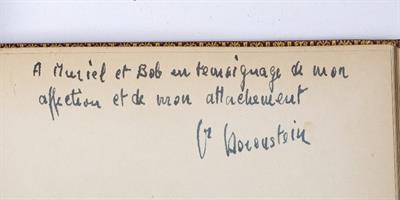 A Muriel et Bob en temoignage de mon
affection et de mon attachement